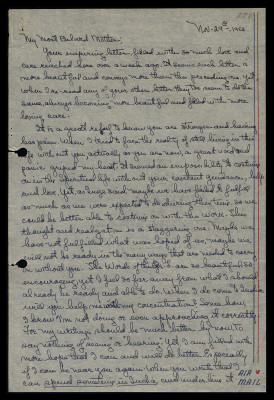 Nov. 29th, 1960
My Most Beloved Mother,
Your inspiring letter, filled with so much love and
care reached here over a week ago. It seems each letter is
more beautiful and conveys more than the preceding one yet
when I re-read any of your other letters they do seem to do the
same, always becoming more beautiful and filled with more
loving care.
It is a great relief to know you are stronger and having
less pain. When I tried to face the reality of still living in this
life without you actually as you are now, a great void and
panic gripped my heart. It seemed an impossibility to continue
on in the spiritual life without your constant guidance, help
and love. Yet, as I was sad maybe we have failed to fulfill
as much as we were expected to do during this time so we
could be better able to continue on with the work. This
thought and realization is a staggering one. Maybe we
have not fulfilled what was hoped of us, maybe we
will not be ready in the many ways that are needed to carry
on without you. The words of
encouraging yet I feel so far away from what I should
already be ready and able to do. When I do come to India
will you help me with my concentration? Some how
I know I'm not doing or even approaching it correctly.
For my writings should be much better by now to
say nothing of "seeing or hearing". Yet I am filled with
more hope that I can and will do better. Especially
if I can be near you again. When you write that I
can spend sometime in India and under
AIR
MAIL